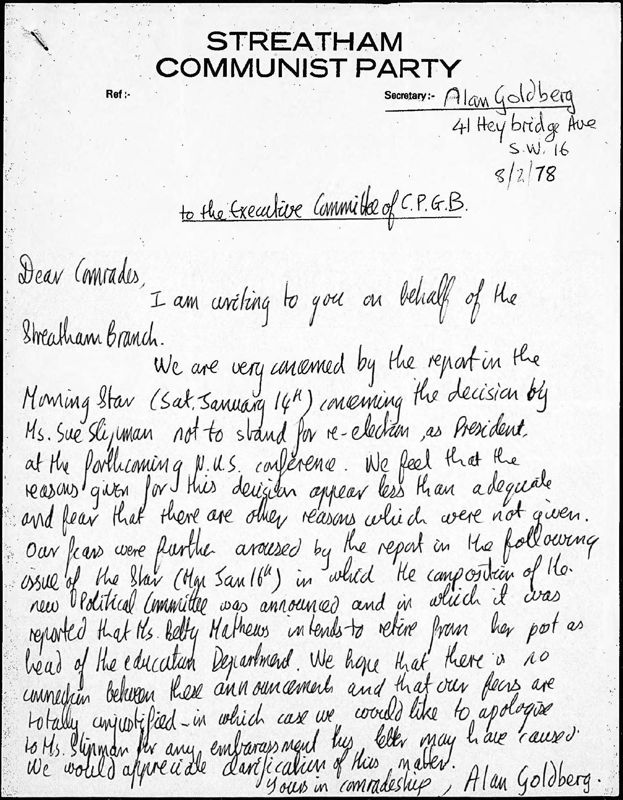 STREATHAM
COMMUNIST PARTY
Ref :-
Secretary :- Alan Goldberg
41 Heybridge Ave
S.W. 16
8/2/78
to the Executive Committee of C.P.G.B.
Dear Comrades,
I am writing to you on behalf of the
Streatham Branch.
We are very concerned by the report in the
Morning Star (Sat. January 14th) concerning the decision by
Ms. Sue Slipman not to stand for re-election, as President,
at the forthcoming N.U.S. conference. We feel that the
reasons given for this decision appear less than adequate
and fear that there are other reasons which were not given.
Our fears were further aroused by the report in the following
issue of the Star (Mon Jan 16th) in which the composition of the
new Political Committee was announced and in which it was
reported that Ms. Betty Mathews intends to retire from her post as
head of the education Department. We hope that there is no
connection between these announcements and that our fears are
totally unjustified - in which case we would like to apologise
to Ms. Slipman for any embarassment this letter may have caused.
We would appreciate clarification of this matter.
Yours in comradeship, Alan Goldberg.